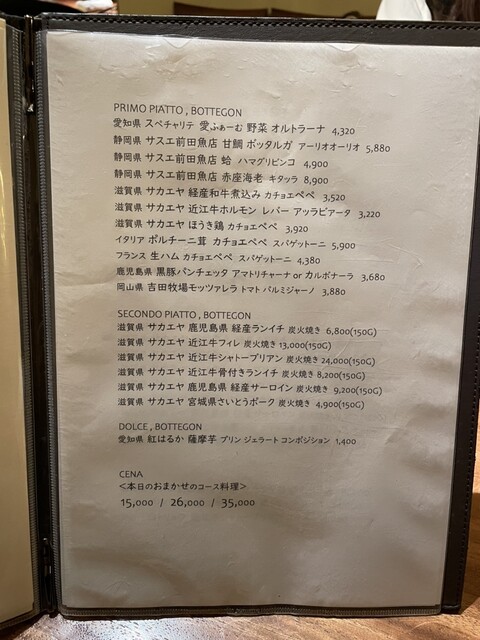 PRIMO PIATTO , BOTTEGON
愛知県 スペチャリテ 愛ふぁーむ 野菜 オルトラーナ 4,320
静岡県 サスエ前田魚店 甘鯛 ボッタルガ アーリオオーリオ 5,880
静岡県 サスエ前田魚店 蛤 ハマグリピンコ 4,900
静岡県 サスエ前田魚店 赤座海老 キタッラ 8,900
滋賀県 サカエヤ 経産和牛煮込み カチョエペペ 3,520
滋賀県 サカエヤ 近江牛ホルモン レバー アッラビアータ 3,220
滋賀県 サカエヤ ほうき鶏 カチョエペペ 3,920
イタリア ポルチーニ茸 カチョエペペ スパゲットーニ 5,900
フランス 生ハム カチョエペペ スパゲットーニ 4,380
鹿児島県 黒豚パンチェッタ アマトリチャーナ or カルボナーラ 3,680
岡山県 吉田牧場モッツァレラ トマト パルミジャーノ 3,880
SECONDO PIATTO , BOTTEGON
滋賀県 サカエヤ 鹿児島県 経産ランイチ 炭火焼き 6,800(150G)
滋賀県 サカエヤ 近江牛フィレ 炭火焼き 13,000(150G)
滋賀県 サカエヤ 近江牛シャトーブリアン 炭火焼き 24,000(150G)
滋賀県 サカエヤ 近江牛骨付きランイチ 炭火焼き 8,200(150G)
滋賀県 サカエヤ 鹿児島県 経産サーロイン 炭火焼き 9,200(150G)
滋賀県 サカエヤ 宮城県さいとうポーク 炭火焼き 4,900(150G)
DOLCE , BOTTEGON
愛知県 紅はるか 薩摩芋 プリン ジェラート コンポジション 1,400
CENA
<本日のおまかせのコース料理>
15,000 / 26,000 / 35,000